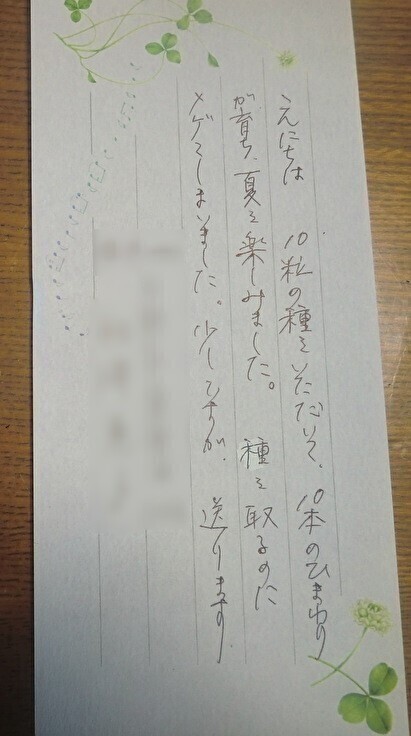 こんにちは 10粒の種をいただいて、10本のひまわり
が育ち、夏を楽しみました。 種を取るのに
メゲてしまいました。少しですが、送ります。